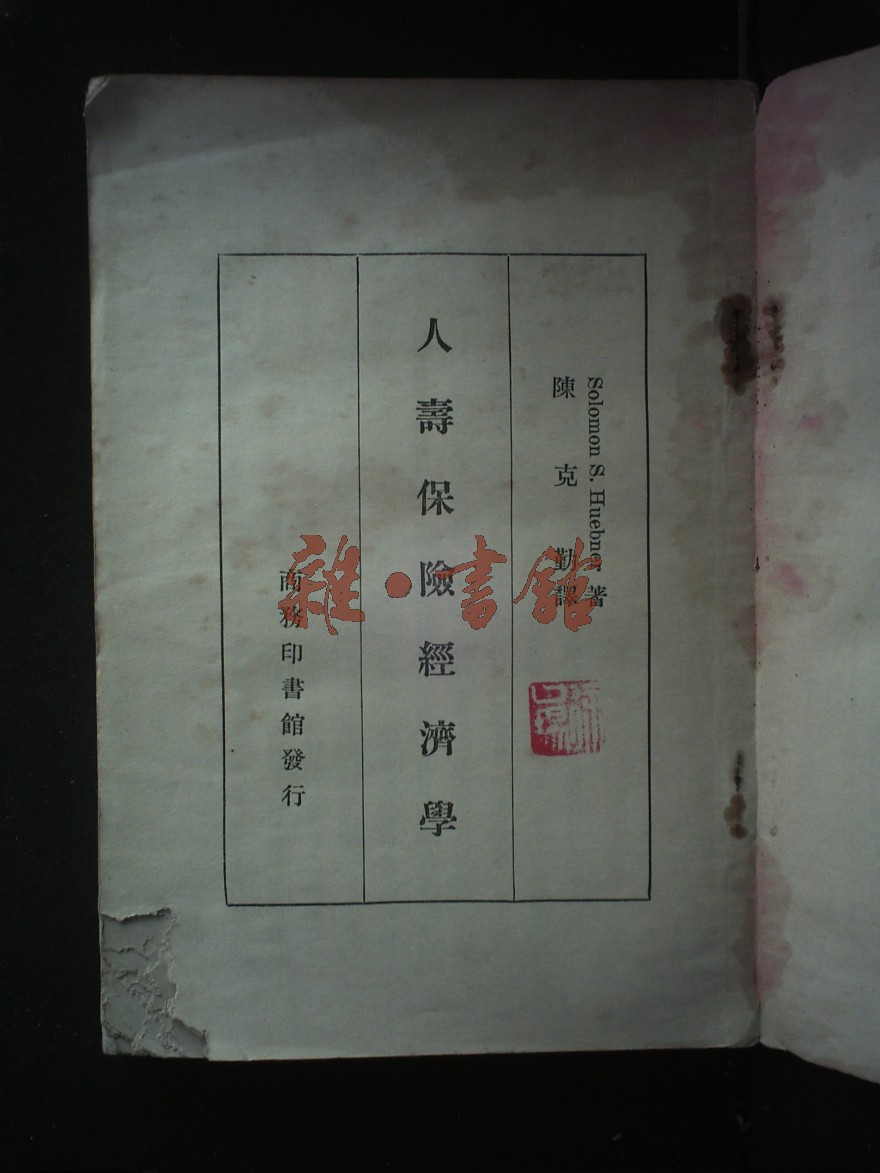 Solomon S. Huebner 著
陳克勤譯
人壽保險經濟學
商務印書館發行
雜·書館